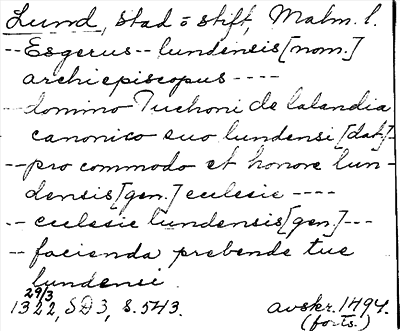 Lund, stad o stift, Malm. l.
-- Esgerus -- lundensis [nom.]
archiepiscopus ----
-- domino Tuchoni de Lalandia
canonico suo lundensi [dat.] -
-- pro commodo et honore lun-
densis [gen.] eculesie ----
-- eculesie lundensis [gen.] ---
-- facienda prebende tue
lundensi.
29/3
1322, SD3, s. 543. avskr. 1494.
(forts.)